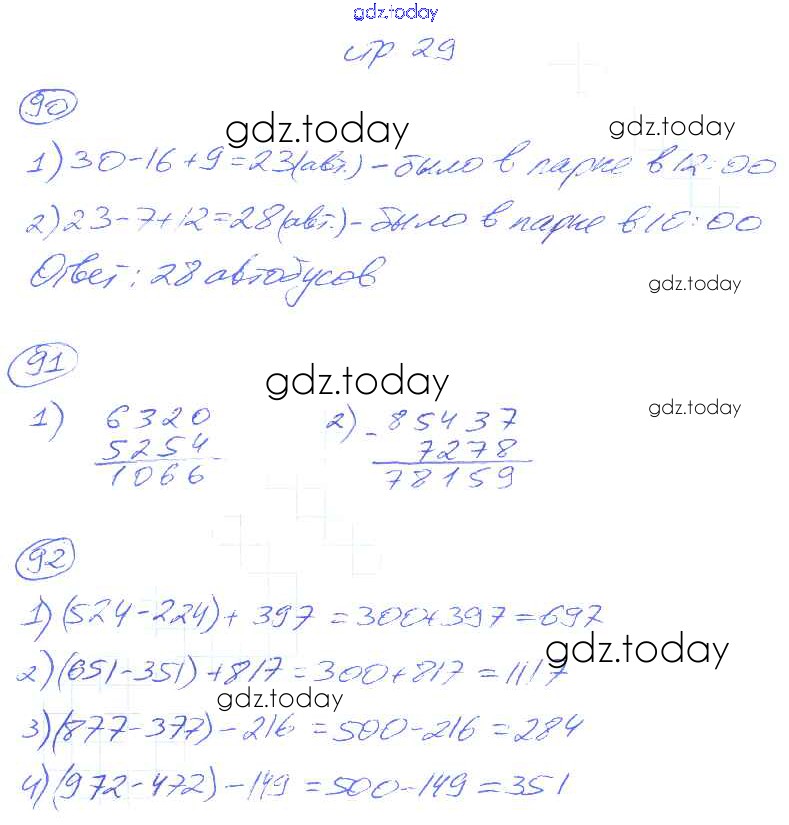 gdz.today
стр 29
90
gdz.today
gdz.today
1) 30-16+9=23(авт.) - было в парке в 12:00
2) 23-7+12=28(авт.) - было в парке в 10:00
Ответ: 28 автобусов
gdz.today
91
gdz.today
gdz.today
1) 6320 2) - 85437
5254 7278
1066 78159
92
1) (524-224)+397=300+397=697
gdz.today
2) (651-351)+817=300+817=1117
gdz.today
3) (877-377)-216=500-216=284
4) (972-472)-149=500-149=351